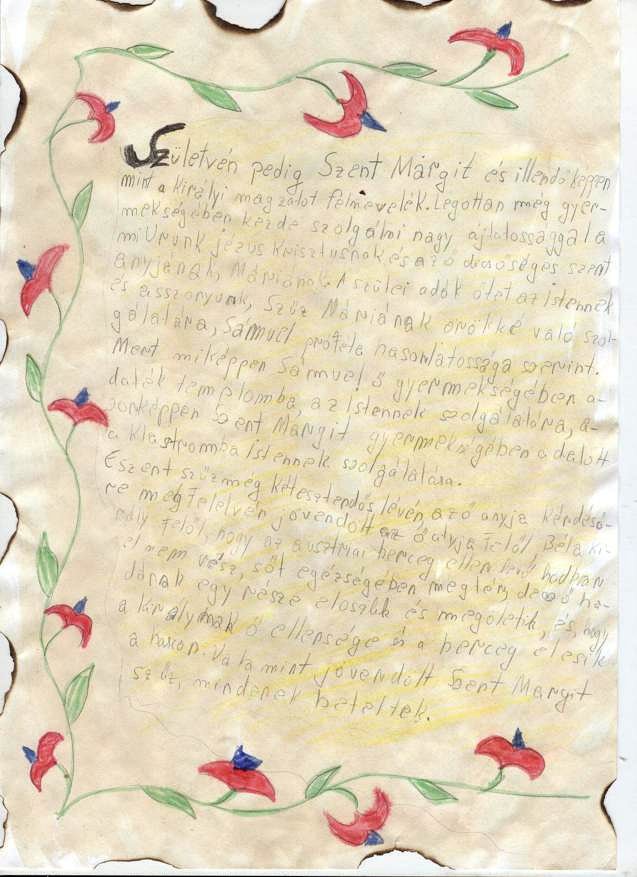 Születvén pedig Szent Margit és illendőképpen
mint a királyi magzatot felnevelék. Legottan még gyer-
mekségében kezde szolgálni nagy ájtatossággal a
mi Urunk jézus krisztusnak és az ő dicsőséges szent
anyjának, Máriának. A szülei adák őtet az istennek
és asszonyunk, Szűz Máriának örökké való szol-
gálatára, Sámuel próféta hasonlatossága szerint.
Mert miképpen Sámuel ő gyermekségében a-
daték templomba, az Istennek szolgálatára, a-
zonképpen Szent Margit gyermekségében adatott
a klastromba istennek szolgálatára.
E szent szűz még kétesztendős lévén az ő anyja kérdésé-
re megfelelvén jövendölt az ő atyja felől, Béla ki-
rály felől, hogy az ausztriai herceg ellen lévő hadban
el nem vész, sőt egészségében megtér, de az ő ha-
dának egy része elosolik és megöletik, és hogy
a királynak ő ellensége is a herceg elesik
a harcon. Valamint jövendölt Szent Margit
szűz, mindenek beteltek.